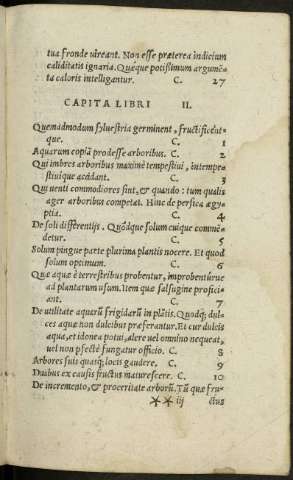 tua fronde uireant. Non esse præterea indicium
caliditatis ignaria. Quæque potissimum argumẽ-
ta caloris intelligantur. C. 27
CAPITA LIBRI II.
Quemadmodum syluestria germinent, fructificent-
que. C. 1
Aquarum copiã prodesse arboribus. C. 2
Qui imbres arboribus maximè tempestiui, intempe-
stiui que accidant. C. 3
Qui uenti commodiores sint, & quando: tum qualis
ager arboribus competat. Hinc de persica ægy-
ptia. C. 4
De soli differentijs. Quõdque solum cuique comme-
detur. C. 5
Solum pingue parte plurima plantis nocere. Et quod
solum optimum. C. 6
Quæ aquæ è terrestribus probentur, improbentùrue
ad plantarum usum. Item quæ salsugine profici-
ant. C. 7
De utilitate aquarũ frigidarũ in plãtis. Quodq; dul-
ces aquæ non dulcibus præferantur. Et cur dulcis
aqua, et idonea potui, alere uel omnino nequeat,
uel non pfectè fungatur officio. C. 8
Arbores suis quasq; locis gaudere. C. 9
Duibus ex causis fructus maturescere. C. 10
De incremento, & proceritate arborũ. Tũ quæ fru-
** iij ctus